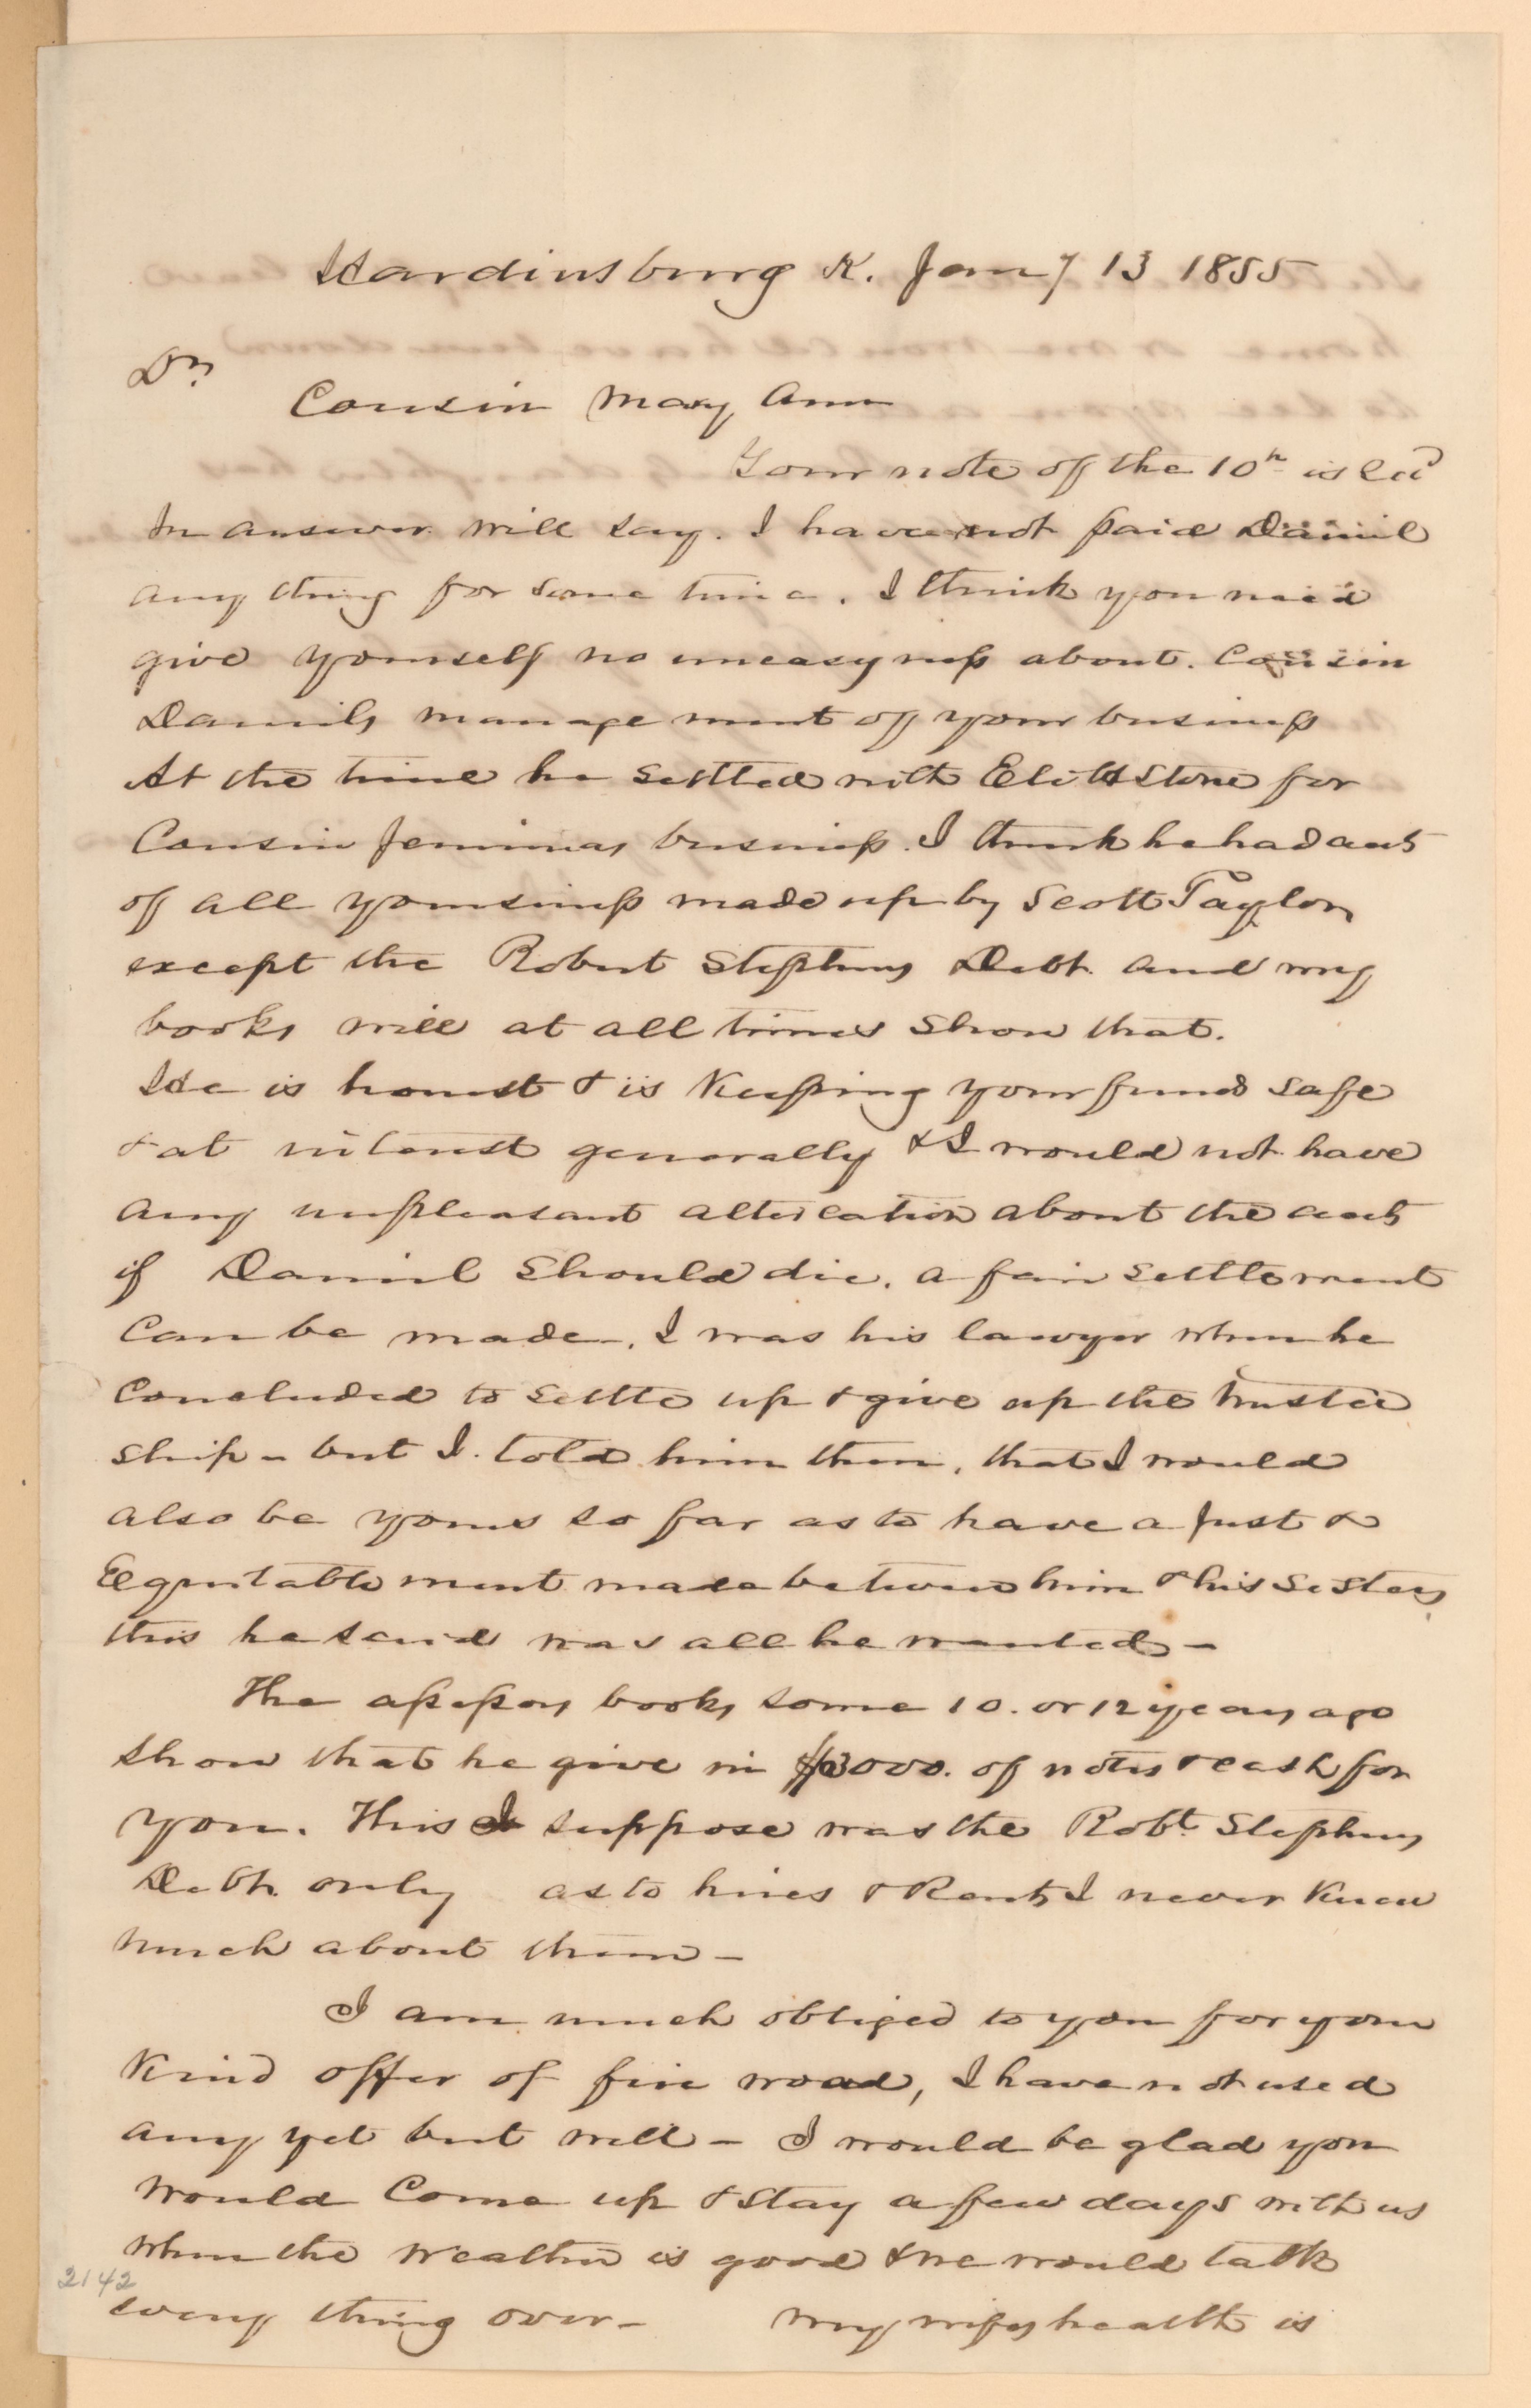 Hardinsburg K. Jany 13 1855
Dr
Cousin Mary Ann
Your note of the 10th is Recd
In answer will say. I have not paid Daniel
any thing for some time. I think you need
give yourself no uneasyness about. Cousin
Daniels management of your business
At the time he settled with Eli H Stone for
Cousin Jemimas business. I think he had acts
of all your made up by Scott Taylor
except the Robert Stephens Debt. and my
books will at all times show that.
He is honest & is Keeping your funds safe
& at interest generally & I would not have
any unpleasant altercation about the acts
if Daniel should die. a fair settlement
can be made. I was his lawyer when he
concluded to settle up & give up the trustee
ship - but I told him then, that I would
also be yours so far as to have a just &
Equitable ment made between him & his sisters
this he said was all he wanted -
The assessors books some 10. or 12 years ago
show that he give in $3000. of notes & cash for
you. This I suppose was the Robt. Stephens
Debt. only as to hires & Rents I never knew
much about them -
I am much obliged to you for your
Kind offer of fire wood, I have not used
any yet but will - I would be glad you
would come up & stay a few days with us
when the weather is good & we would talk
every thing over - my wifes health is
2142